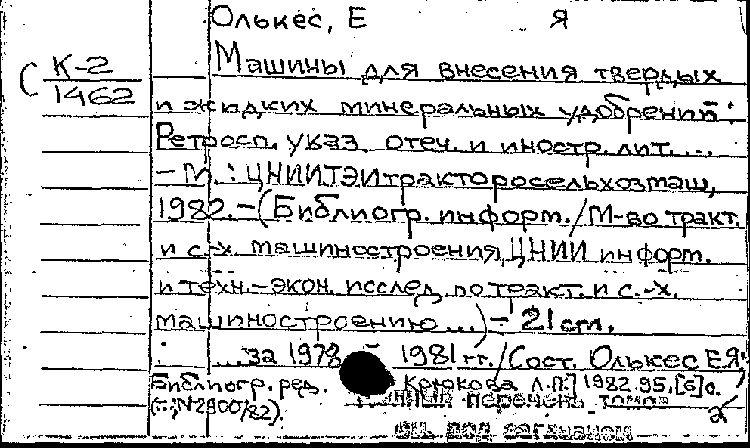 Олькес, Е Я
К-2
1462
Машины для внесения твердых
и жидких минеральных удобрений:
Ретросп. указ. отеч. и иностр. лит. ...
– М.: ЦНИИТЭИтракторосельхозмаш,
1982. – (Библиогр. информ. / М-во тракт.
и с.-х. машиностроения, ЦНИИ информ.
и техн.-экон. исслед. по тракт. и с.-х.
машиностроению ...) – 21 cm.
... за 1978 – 1981 гг. / Сост. Олькес Е.Я.
Библиогр. ред. Крюкова Л.П.] 1982. 95, [6] с.
2900/82).
перечень томов
см. под заглавием